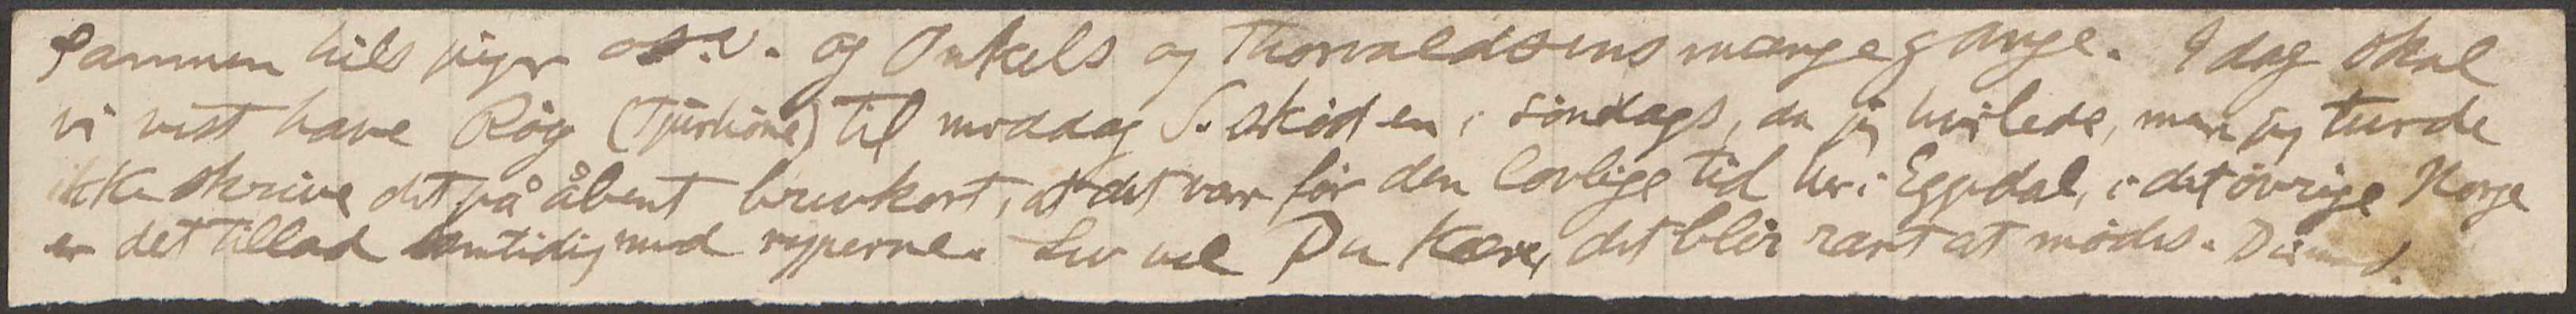 sammen hils piger o.s.v. og Onkels og Thorvaldsens mange gange. I dag skal
vi vist have Röy (Tjurhöne) til middag S. sköd en i söndags, da jeg hvilede, men jeg turde
ikke skrive det på åbent brevkort, at det var för den lovlige tid her i Eggedal, i det övrige Norge
er det tilladt samtidig med ryperne. Lev vel Du Kære, det blir rart at mödes. Din